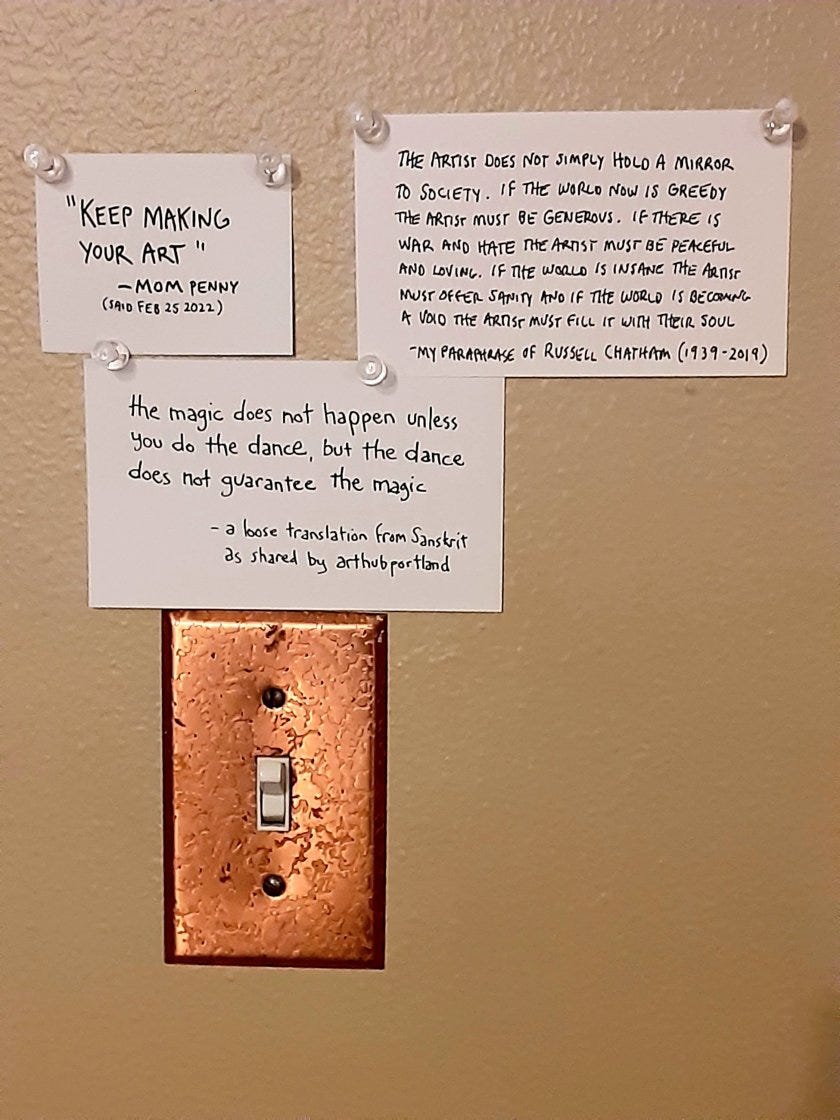 "KEEP MAKING
YOUR ART"
- MOM PENNY
(SAID FEB 25 2022)
THE ARTIST DOES NOT SIMPLY HOLD A MIRROR
TO SOCIETY. IF THE WORLD NOW IS GREEDY
THE ARTIST MUST BE GENEROUS. IF THERE IS
WAR AND HATE THE ARTIST MUST BE PEACEFUL
AND LOVING. IF THE WORLD IS INSANE THE ARTIST
MUST OFFER SANITY AND IF THE WORLD IS BECOMING
A VOID THE ARTIST MUST FILL IT WITH THEIR SOUL
- MY PARAPHRASE OF RUSSELL CHATHAM (1939-2019)
the magic does not happen unless
you do the dance, but the dance
does not guarantee the magic
- a loose translation from Sanskrit
as shared by arthubportland